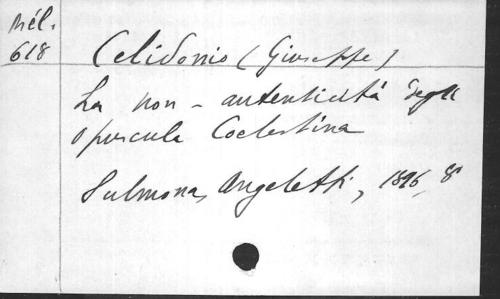 Mél.
618
Celidonio (Giuseppe)
La non-autenticità degli
Opuscula Coelestina
Sulmona, Angeletti, 1896, 8°